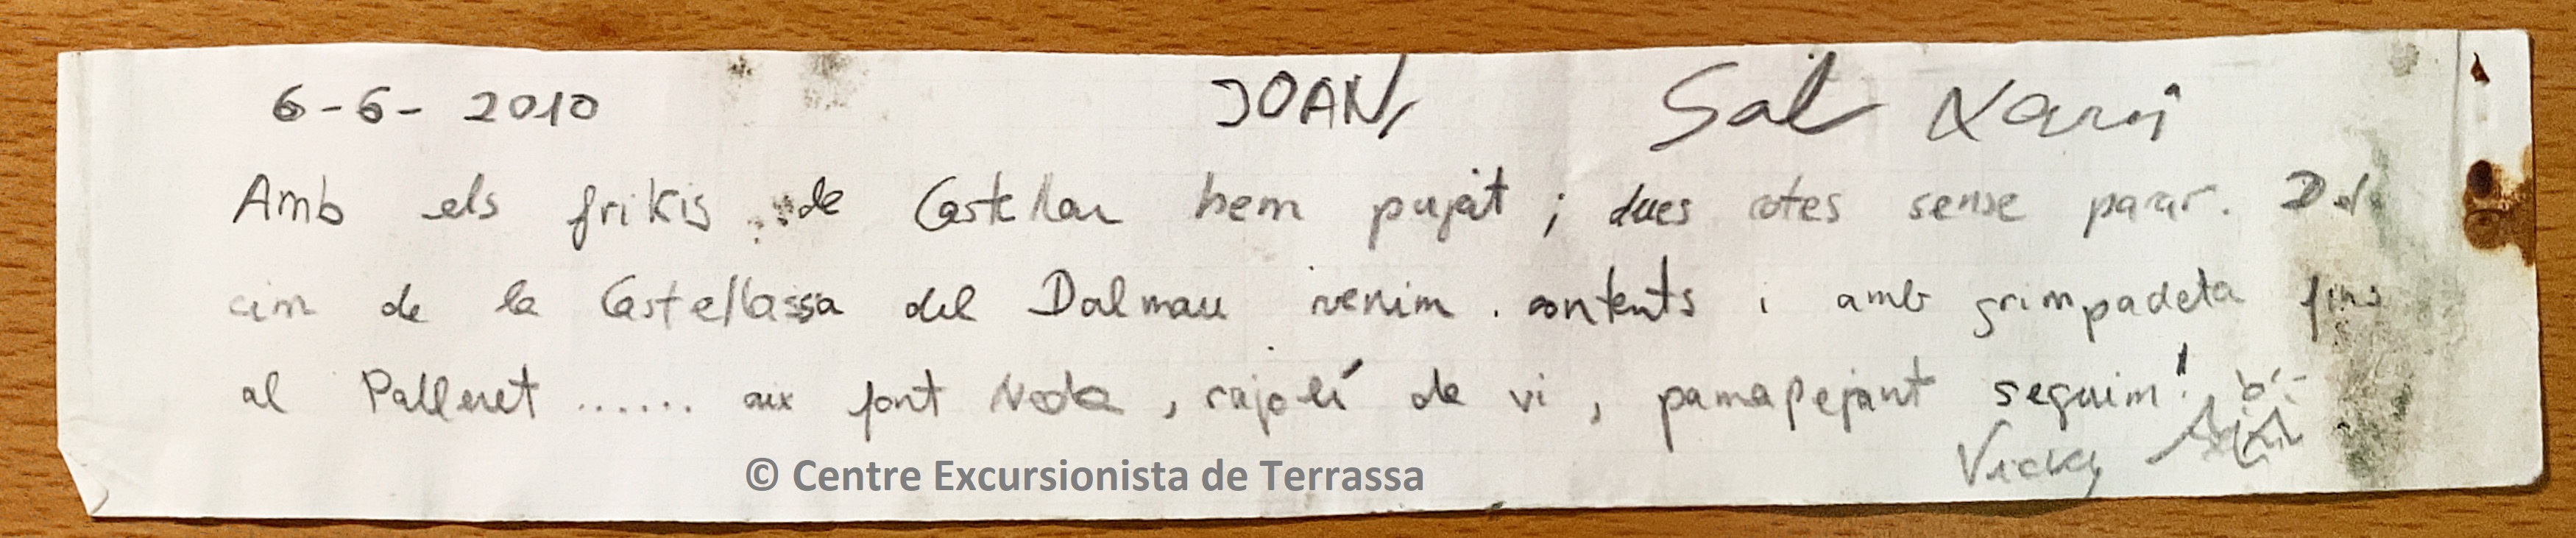 6-6-2010 JOAN, Sal Xavi
Amb els frikis de Castellar hem pujat ; dues rotes sense parar. Del
cim de la Castellassa del Dalmau venim. contents i amb grimpadeta fins
al Palleret ...... aix font Noda, rajolí de vi, pamapejant seguim!
Vicky
© Centre Excursionista de Terrassa